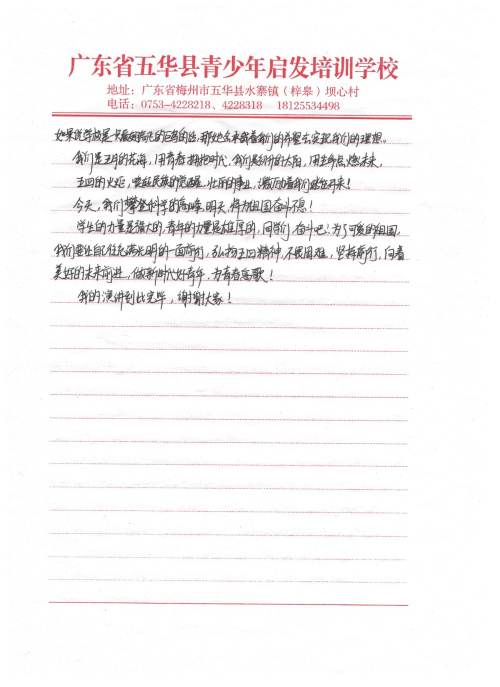 广东省五华县青少年启发培训学校
地址：广东省梅州市五华县水寨镇（梓皋）坝心村
电话：0753-4228218、4228318 18125534498
如果说学校是 的 ，那 承载着我们的希望去实现我们的理想。
我们是五月的花海，用青春拥抱时代，我们是初升的太阳，用生命点燃未来，
五四的火炬，唤起民族的觉醒，壮丽的事业，激励着我们继往开来！
今天，我们攀登科学的高峰，明天，将为祖国奋斗不息！
学生的力量是强大的，青年的力量是雄厚的，同学们，奋斗吧！为了可爱的祖国，
我们要 往充满光明的一面前行，弘扬五四精神，不畏困难，坚持前行，向着
美好的未来前进，做新时代好青年，为青春高歌！
我的演讲到此完毕，谢谢大家！